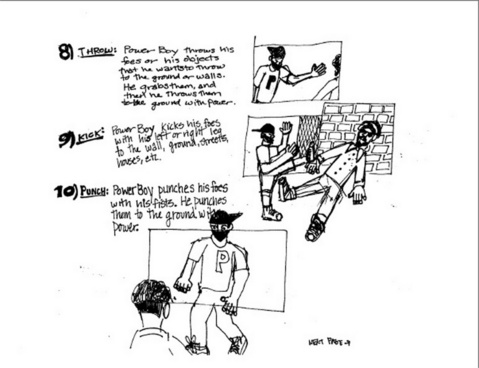 8) THROW: Power Boy throws his
foes or his objects
that he wants to throw
to the ground or walls.
He grabs them, and
then he throws them
to the ground with power.
P
9) KICK: Power Boy kicks his foes
with his left or right leg
to the wall, ground, streets,
houses, etc.
10) PUNCH: Power Boy punches his foes
with his fists. He punches
them to the ground with
power.
P
NEXT PAGE→